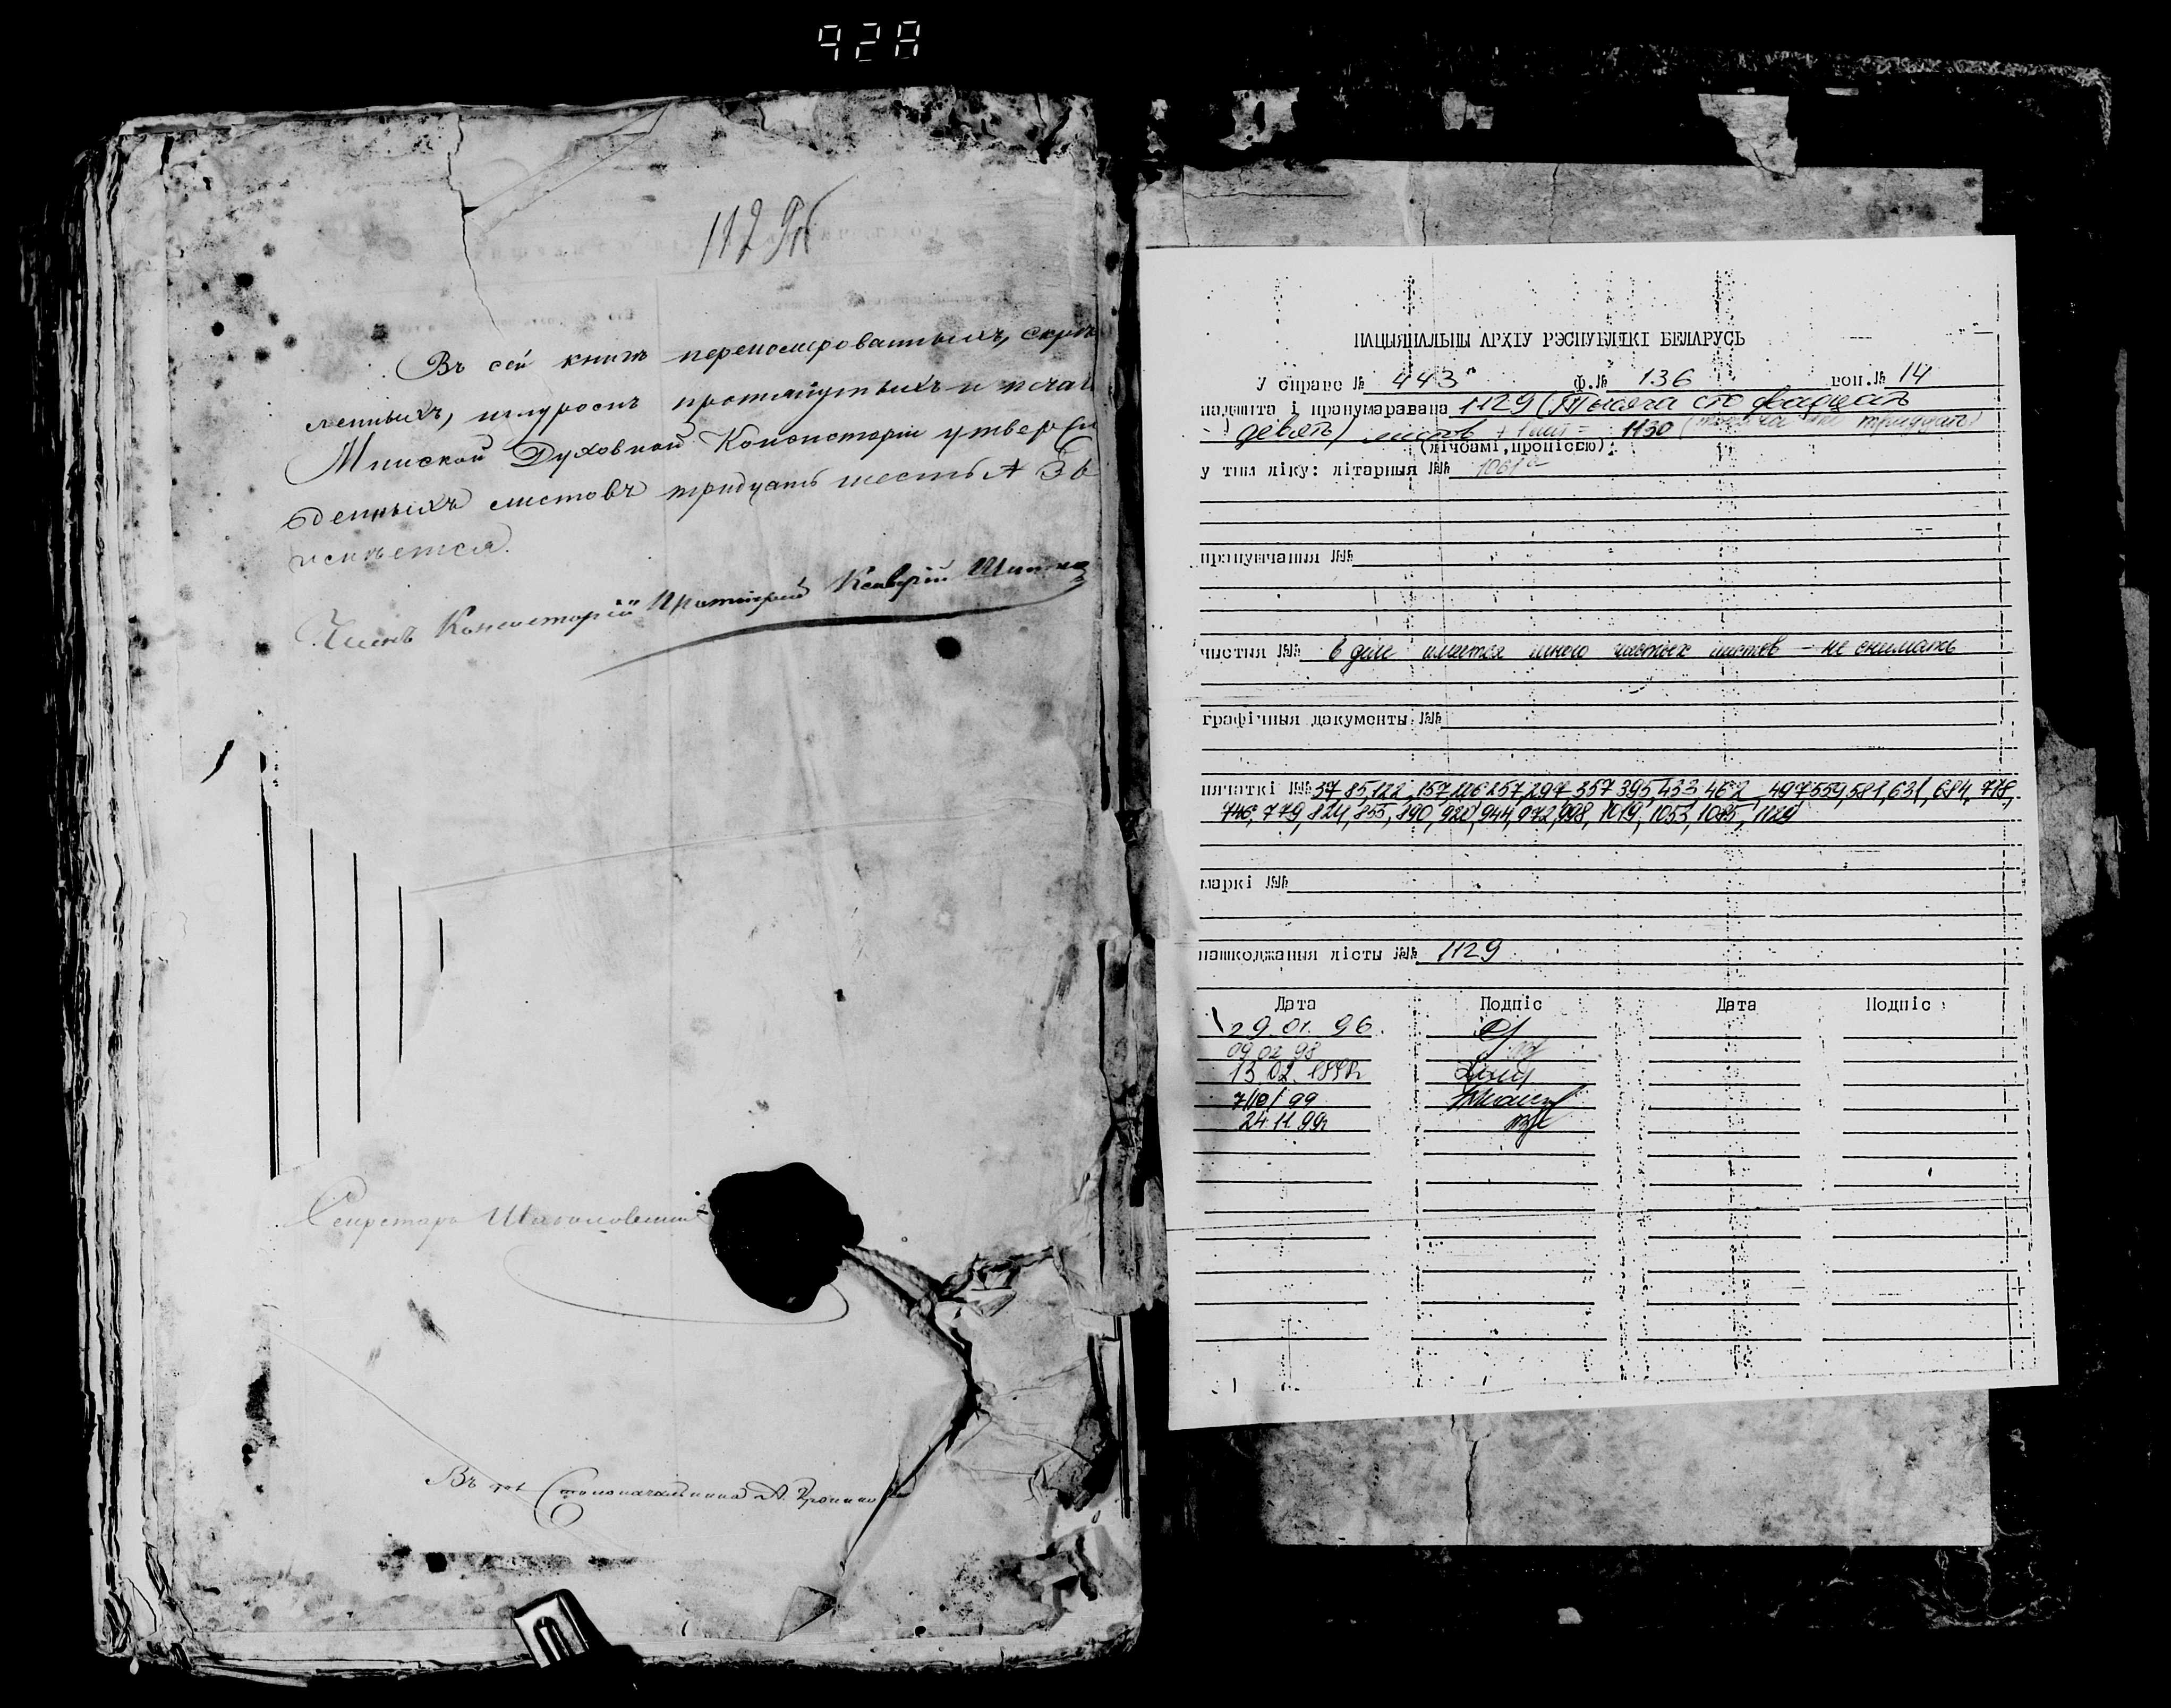 928
1129
Въ сей книгѣ перенумерованныхъ, скрѣп
ленныхъ, шнуромъ протянутыхъ и печатью
Минской Духовной Консисторіи утверж
денныхъ листовъ тридцать шесть
Членъ Консисторіи Протоіерей Ксаверій
Секретарь
Въ Столоначальника А.
НАЦЫЯНАЛЬНЫ АРХІЎ РЭСПУБЛІКІ БЕЛАРУСЬ
У справе № 443 ф.№ 136 воп.№ 14
падшита і пранумаравана 1129 (Тысяча сто двадцать
девять) листов + 1 лит = 1130 (тысяча сто тридцать)
(лічбамі, пропіссю)
у тым ліку: літарныя №№ 1061а
прапушчаныя №№
чыстыя №№ в деле имеется много чистых листов - не снимать
графічныя дакументы №№
пячаткі №№ 37, 85, 122, 157, 226, 257, 297, 357, 395, 433, 462, 497, 559, 581, 631, 684, 718,
746, 779, 824, 855, 890, 920, 944, 972, 998, 1019, 1053, 1085, 1129
маркі №№
пашкоджаныя лісты №№ 1129
Дата Подпіс Дата Подпіс
29.01.96.
09.02.98
13.02.
7/10/99
24.11.99г